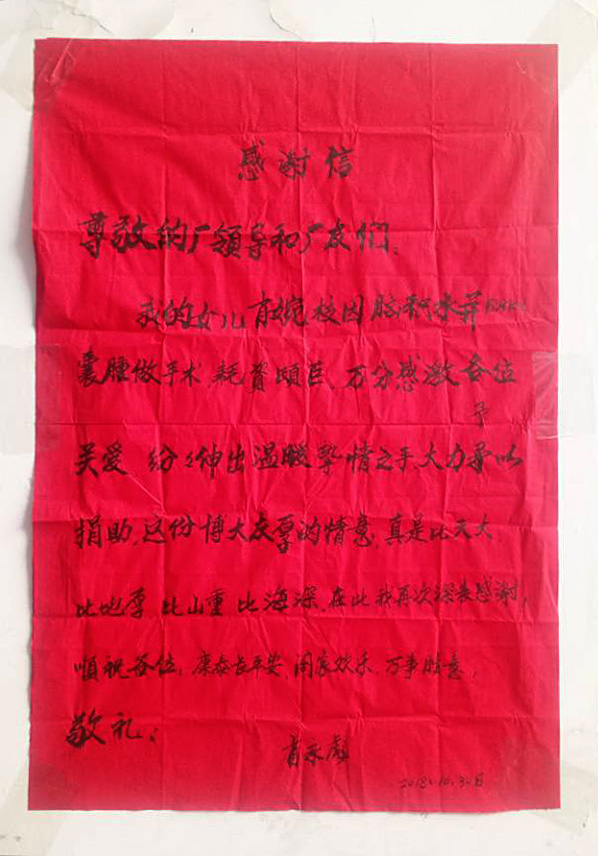 感谢信
尊敬的厂领导和厂友们、
我的女儿肖婉校因脑积水并
囊肿做手术、耗资颇巨、万分感激各位
予
关爱、纷纷伸出温暖挚情之手大力予以
捐助、这份博大仄厚的情意、真是比天大
比地厚、比山重、比海深、在此我再次深表感谢，
顺祝各位：康泰长平安、阖家欢乐、万事胜意，
敬礼、
肖永彪
2018.10.30日